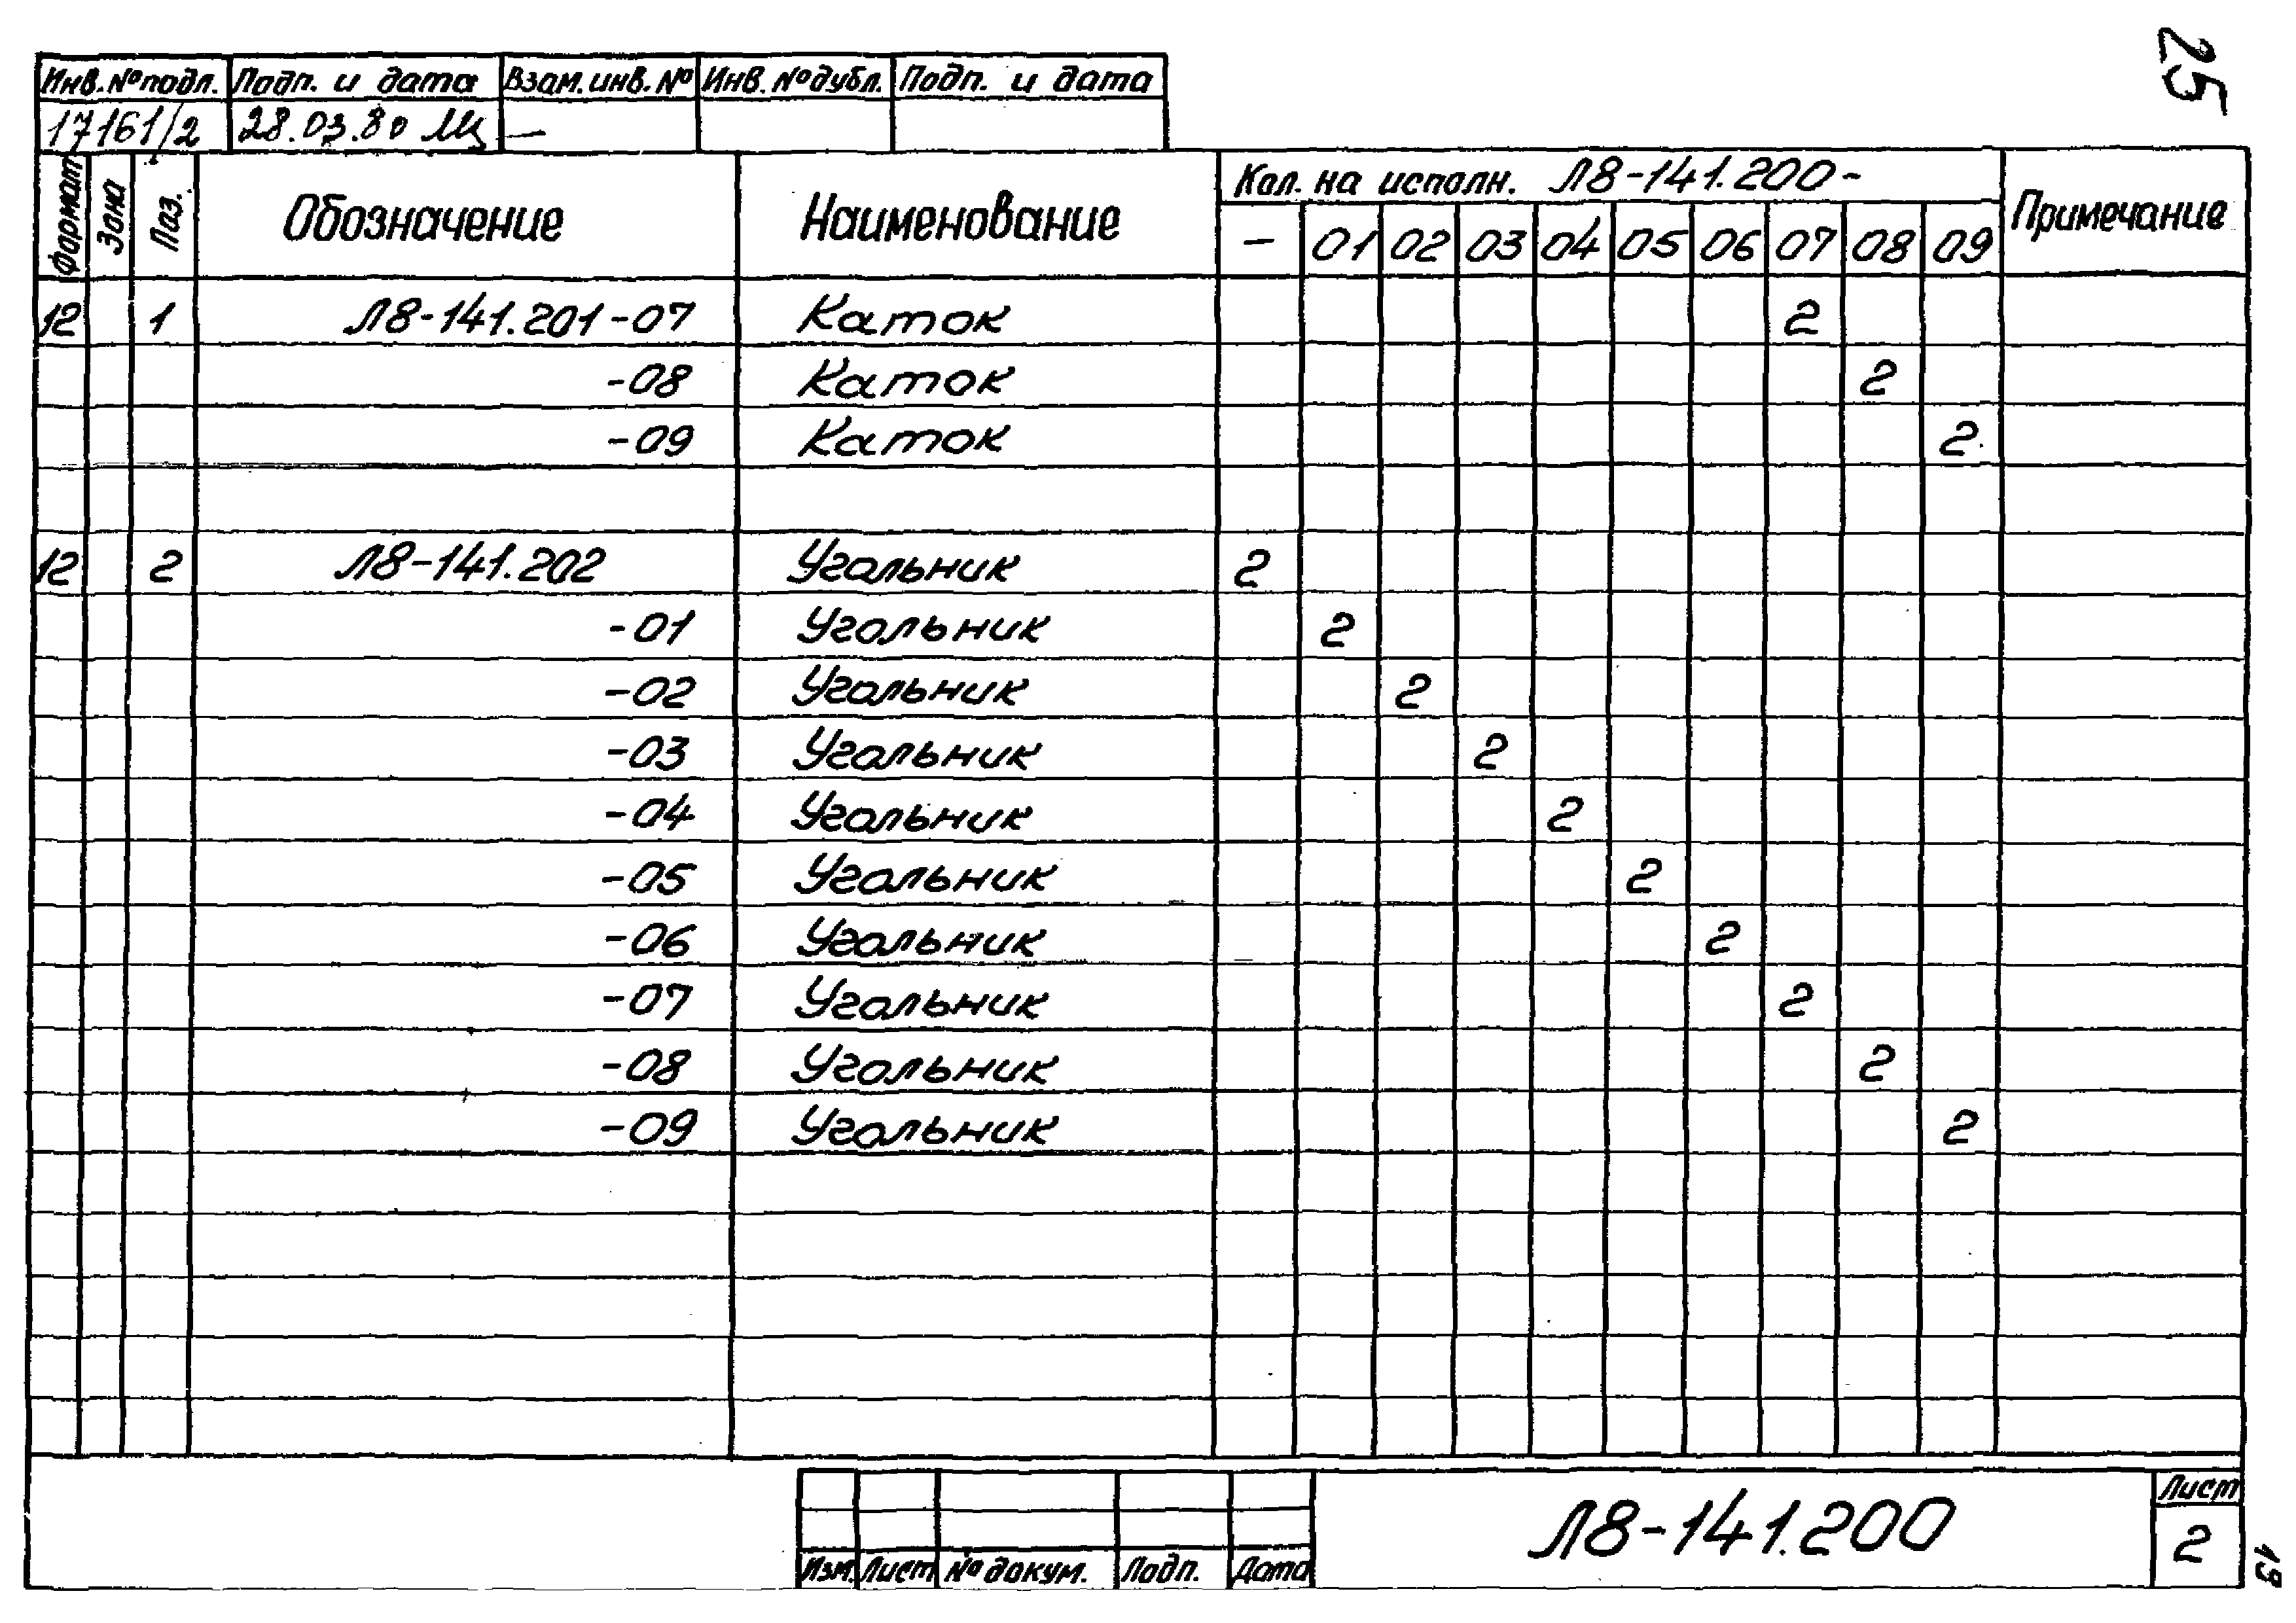 25
Инв.№подл. Подп. и дата Взам.инв.№ Инв.№дубл. Подп. и дата
17161/2 28.03.80 —
Формат Зона Поз. Обозначение Наименование Кол. на исполн. Л8-141.200- Примечание
– 01 02 03 04 05 06 07 08 09
12 1 Л8-141.201-07 Каток 2
-08 Каток 2
-09 Каток 2
12 2 Л8-141.202 Угольник 2
-01 Угольник 2
-02 Угольник 2
-03 Угольник 2
-04 Угольник 2
-05 Угольник 2
-06 Угольник 2
-07 Угольник 2
-08 Угольник 2
-09 Угольник 2
Л8-141.200 Лист
2
Изм. Лист № докум. Подп. Дата
19